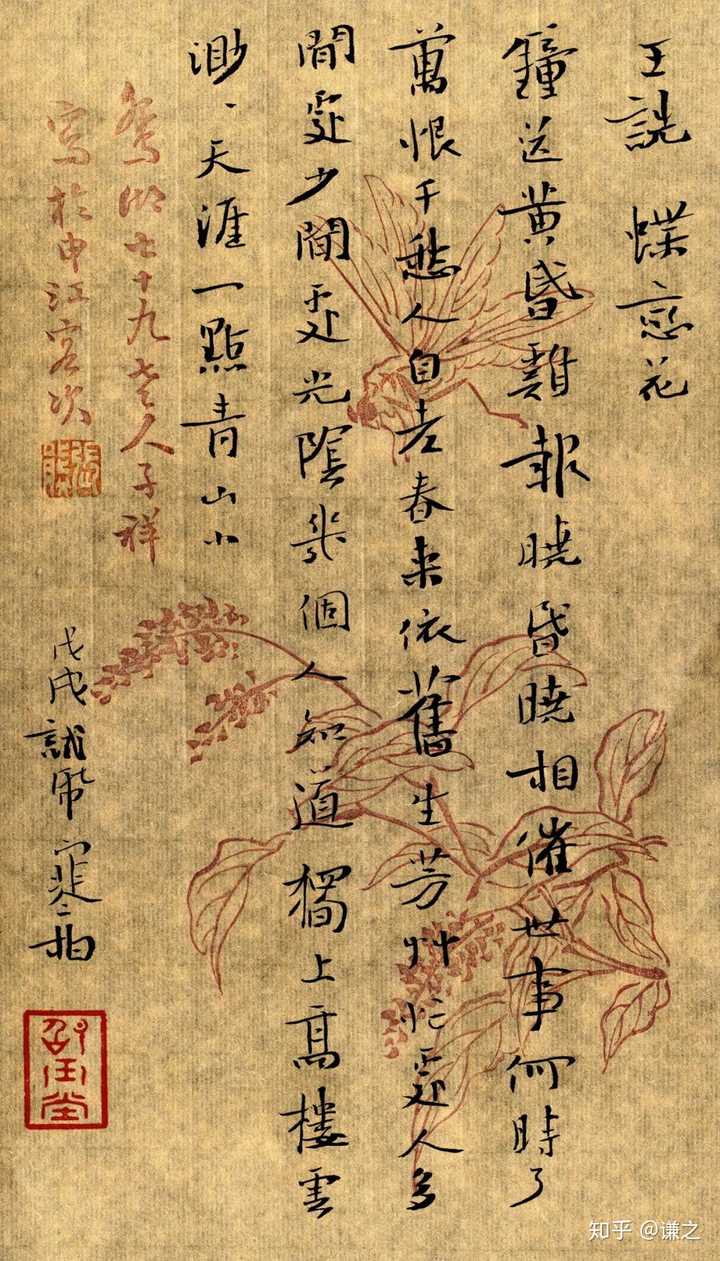 王詵 蝶恋花
鐘送黃昏雞報曉昏曉相催世事何時了
萬恨千愁人自老春來依舊生芳艸忙處人多
閒處少閒處光陰幾個人知道獨上高樓雲
渺、天涯一點青山小
鴛湖七十九老人子祥
寫於申江客次
張熊
戊戌試
知乎 @谦之